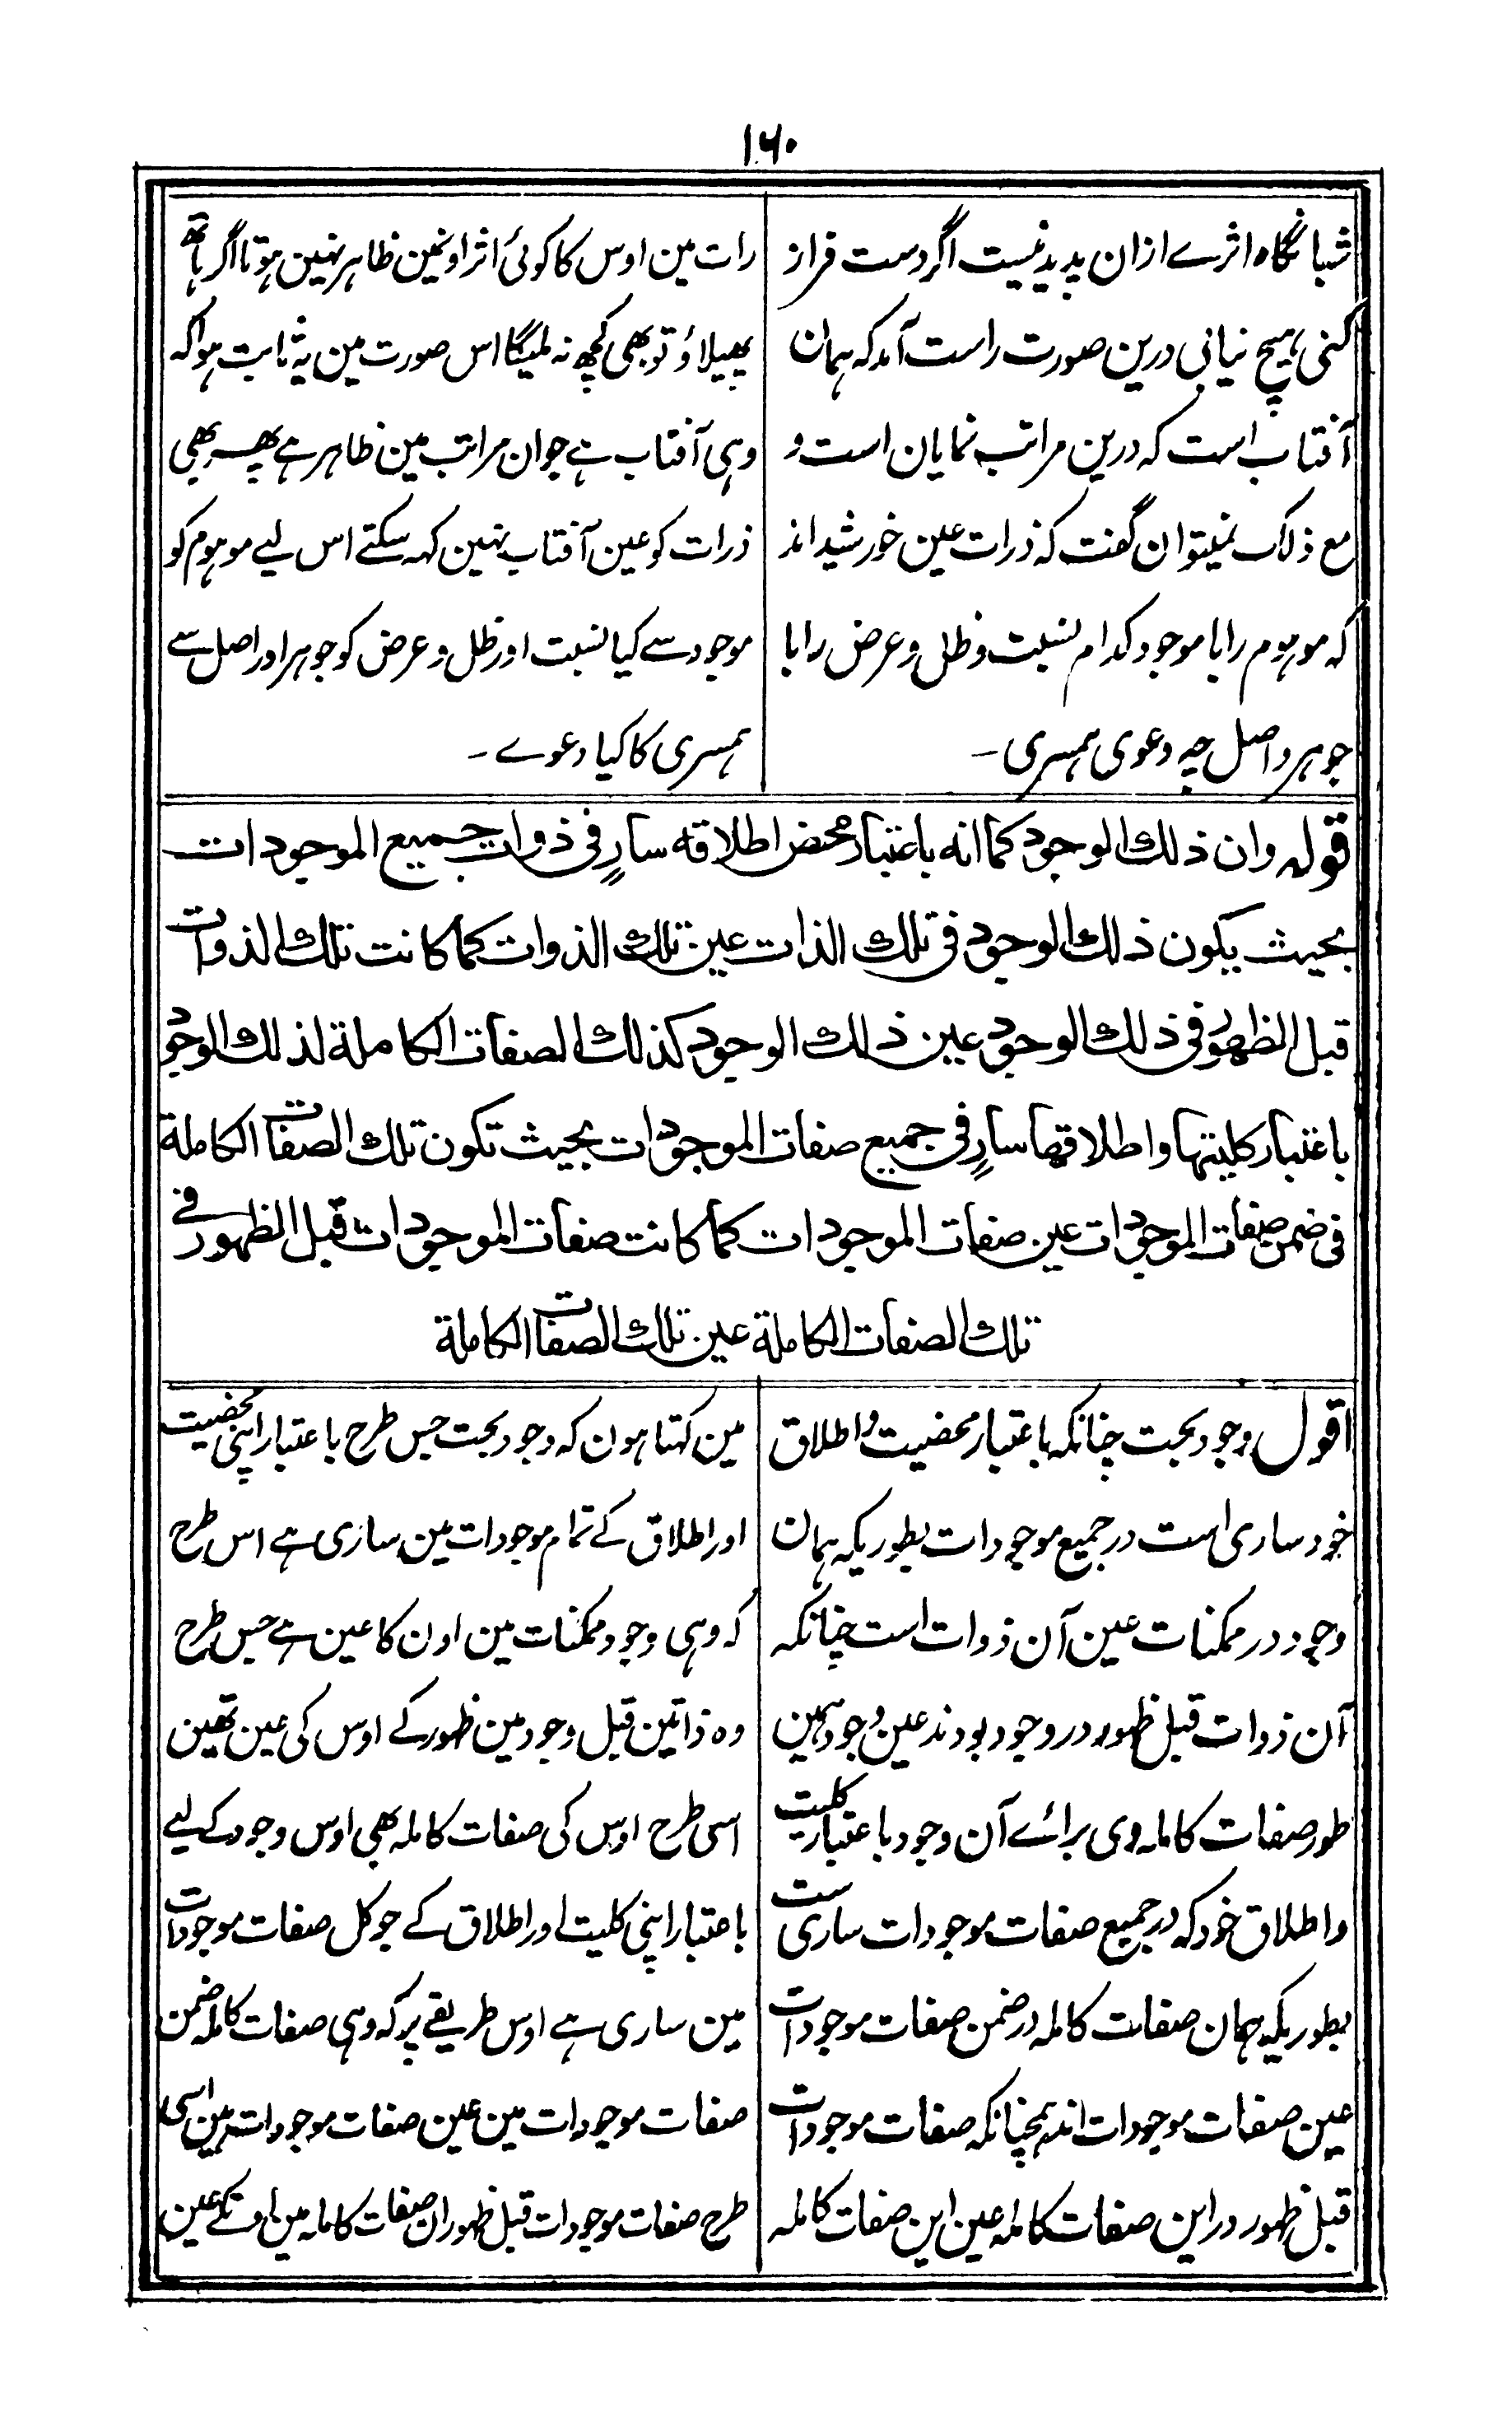 ۱۶۰
شبانگاہ اثرے ازان پدید نیست اگر دست فراز
کنی ہیچ نیابی درین صورت راست آمد کہ ہمان
آفتاب است کہ درین مراتب نمایان است و
مع ذلک نمیتوان گفت کہ ذرات عین خورشید اند
کہ موہوم را با موجود کدام نسبت و ظل و عرض را با
جوہر و اصل چہ دعوی ہمسری ۔
رات مین اوس کا کوئی اثر اونمین ظاہر نہین ہوتا اگر ہاتھ
پھیلاؤ تو بھی کچھ نہ ملیگا اس صورت مین یہ ثابت ہوا کہ
وہی آفتاب ہے جو ان مراتب مین ظاہر ہے پھر بھی
ذرات کو عین آفتاب نہین کہہ سکتے اس لیے موہوم کو
موجود سے کیا نسبت اور ظل و عرض کو جوہر اور اصل سے
ہمسری کا کیا دعوے ۔
قولہ وان ذلك الوجود كما انه باعتبار محض اطلاقه سارٍ فی ذوات جمیع الموجودات
بحیث یكون ذلك الوجود فی تلك الذات عین تلك الذوات كما كانت تلك الذوات
قبل الظهور فی ذلك الوجود عین ذلك الوجود كذلك الصفات الكاملة لذلك الوجود
باعتبار كلیتها واطلاقها سارٍ فی جمیع صفات الموجودات بحیث تكون تلك الصفات الكاملة
فی ضمن صفات الموجودات عین صفات الموجودات كما كانت صفات الموجودات قبل الظهور فی
تلك الصفات الكاملة عین تلك الصفات الكاملة
اقول وجود بحت چنانکہ باعتبار محضیت و اطلاق
خود ساری است در جمیع موجودات بطوریکہ ہمان
وجود در ممکنات عین آن ذوات است چنانکہ
آن ذوات قبل ظہور در وجود بودند عین وجود ہمین
طور صفات کاملہ وی برائے آن وجود باعتبار کلیت
و اطلاق خود کہ در جمیع صفات موجودات ساری ست
بطوریکہ ہمان صفات کاملہ در ضمن صفات موجودات
عین صفات موجودات اند ہمچنانکہ صفات موجودات
قبل ظہور در این صفات کاملہ عین این صفات کاملہ
مین کہتا ہون کہ وجود بحت جس طرح باعتبار اپنی محضیت
اور اطلاق کے تمام موجودات مین ساری ہے اس طرح
کہ وہی وجود ممکنات مین اون کا عین ہے جس طرح
وہ ذاتین قبل وجود مین ظہور کے اوس کی عین تھین
اسی طرح اوس کی صفات کاملہ بھی اوس وجود کے لیے
باعتبار اپنی کلیت اور اطلاق کے جو کل صفات موجودات
مین ساری ہے اوس طریقے پر کہ وہی صفات کاملہ ضمن
صفات موجودات مین عین صفات موجودات ہین اسی
طرح صفات موجودات قبل ظہور ان صفات کاملہ مین اونکے عین